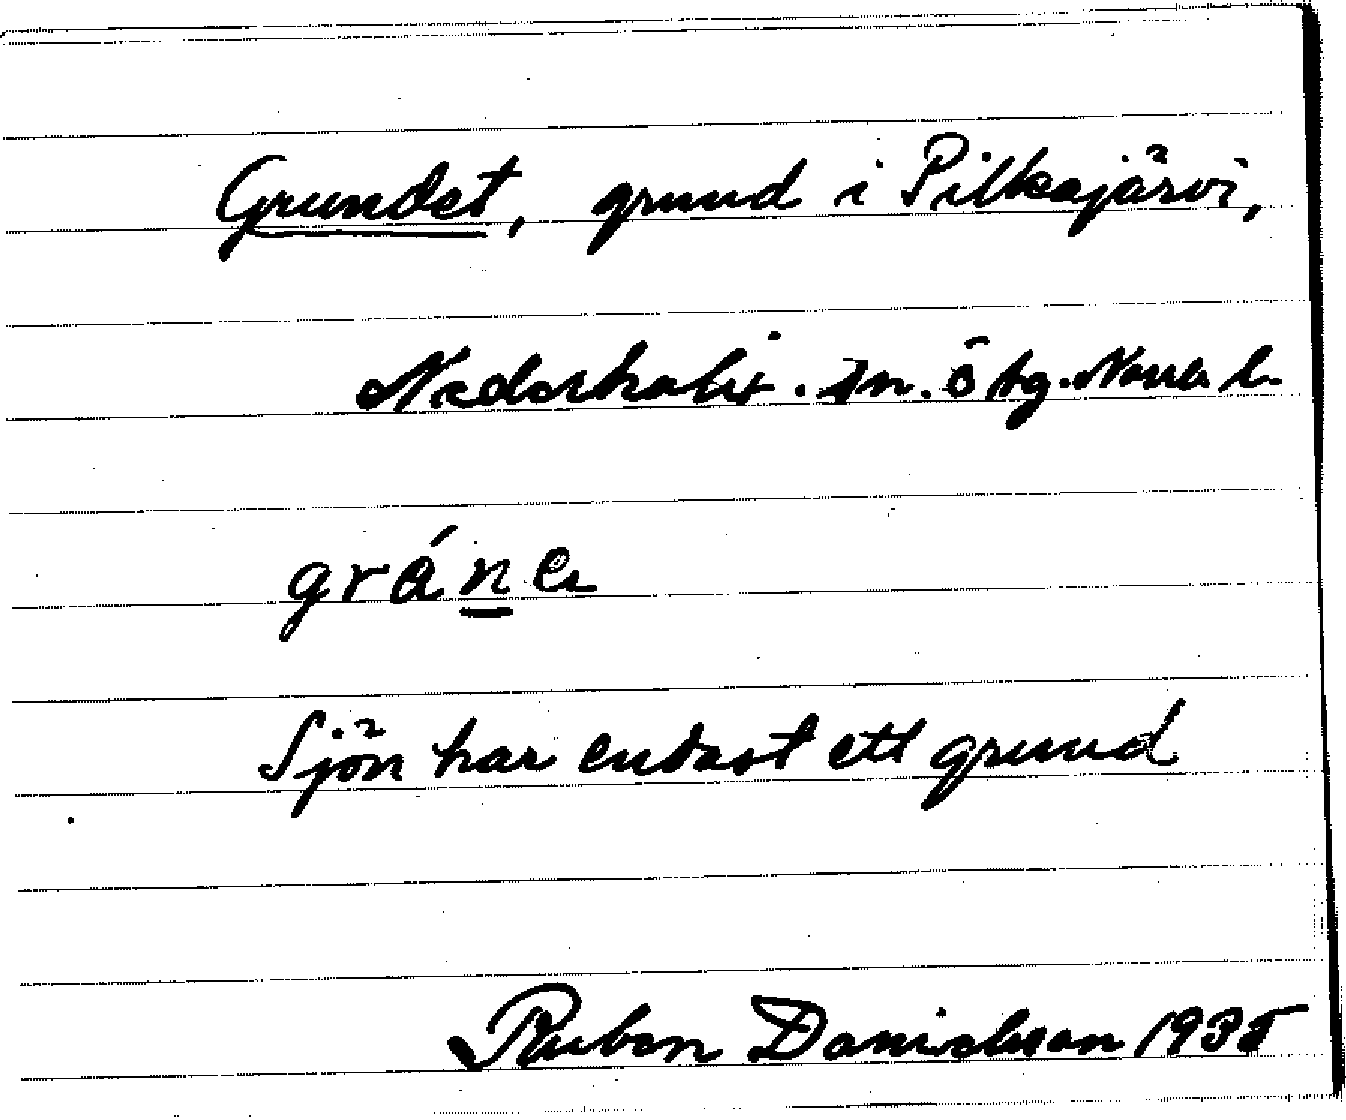 Grundet, grund i Pilkajärvi,
Nederkalix. sn. ö tg. Norrb l.
gráne
Sjön har endast ett grund
Ruben Danielsson 1935